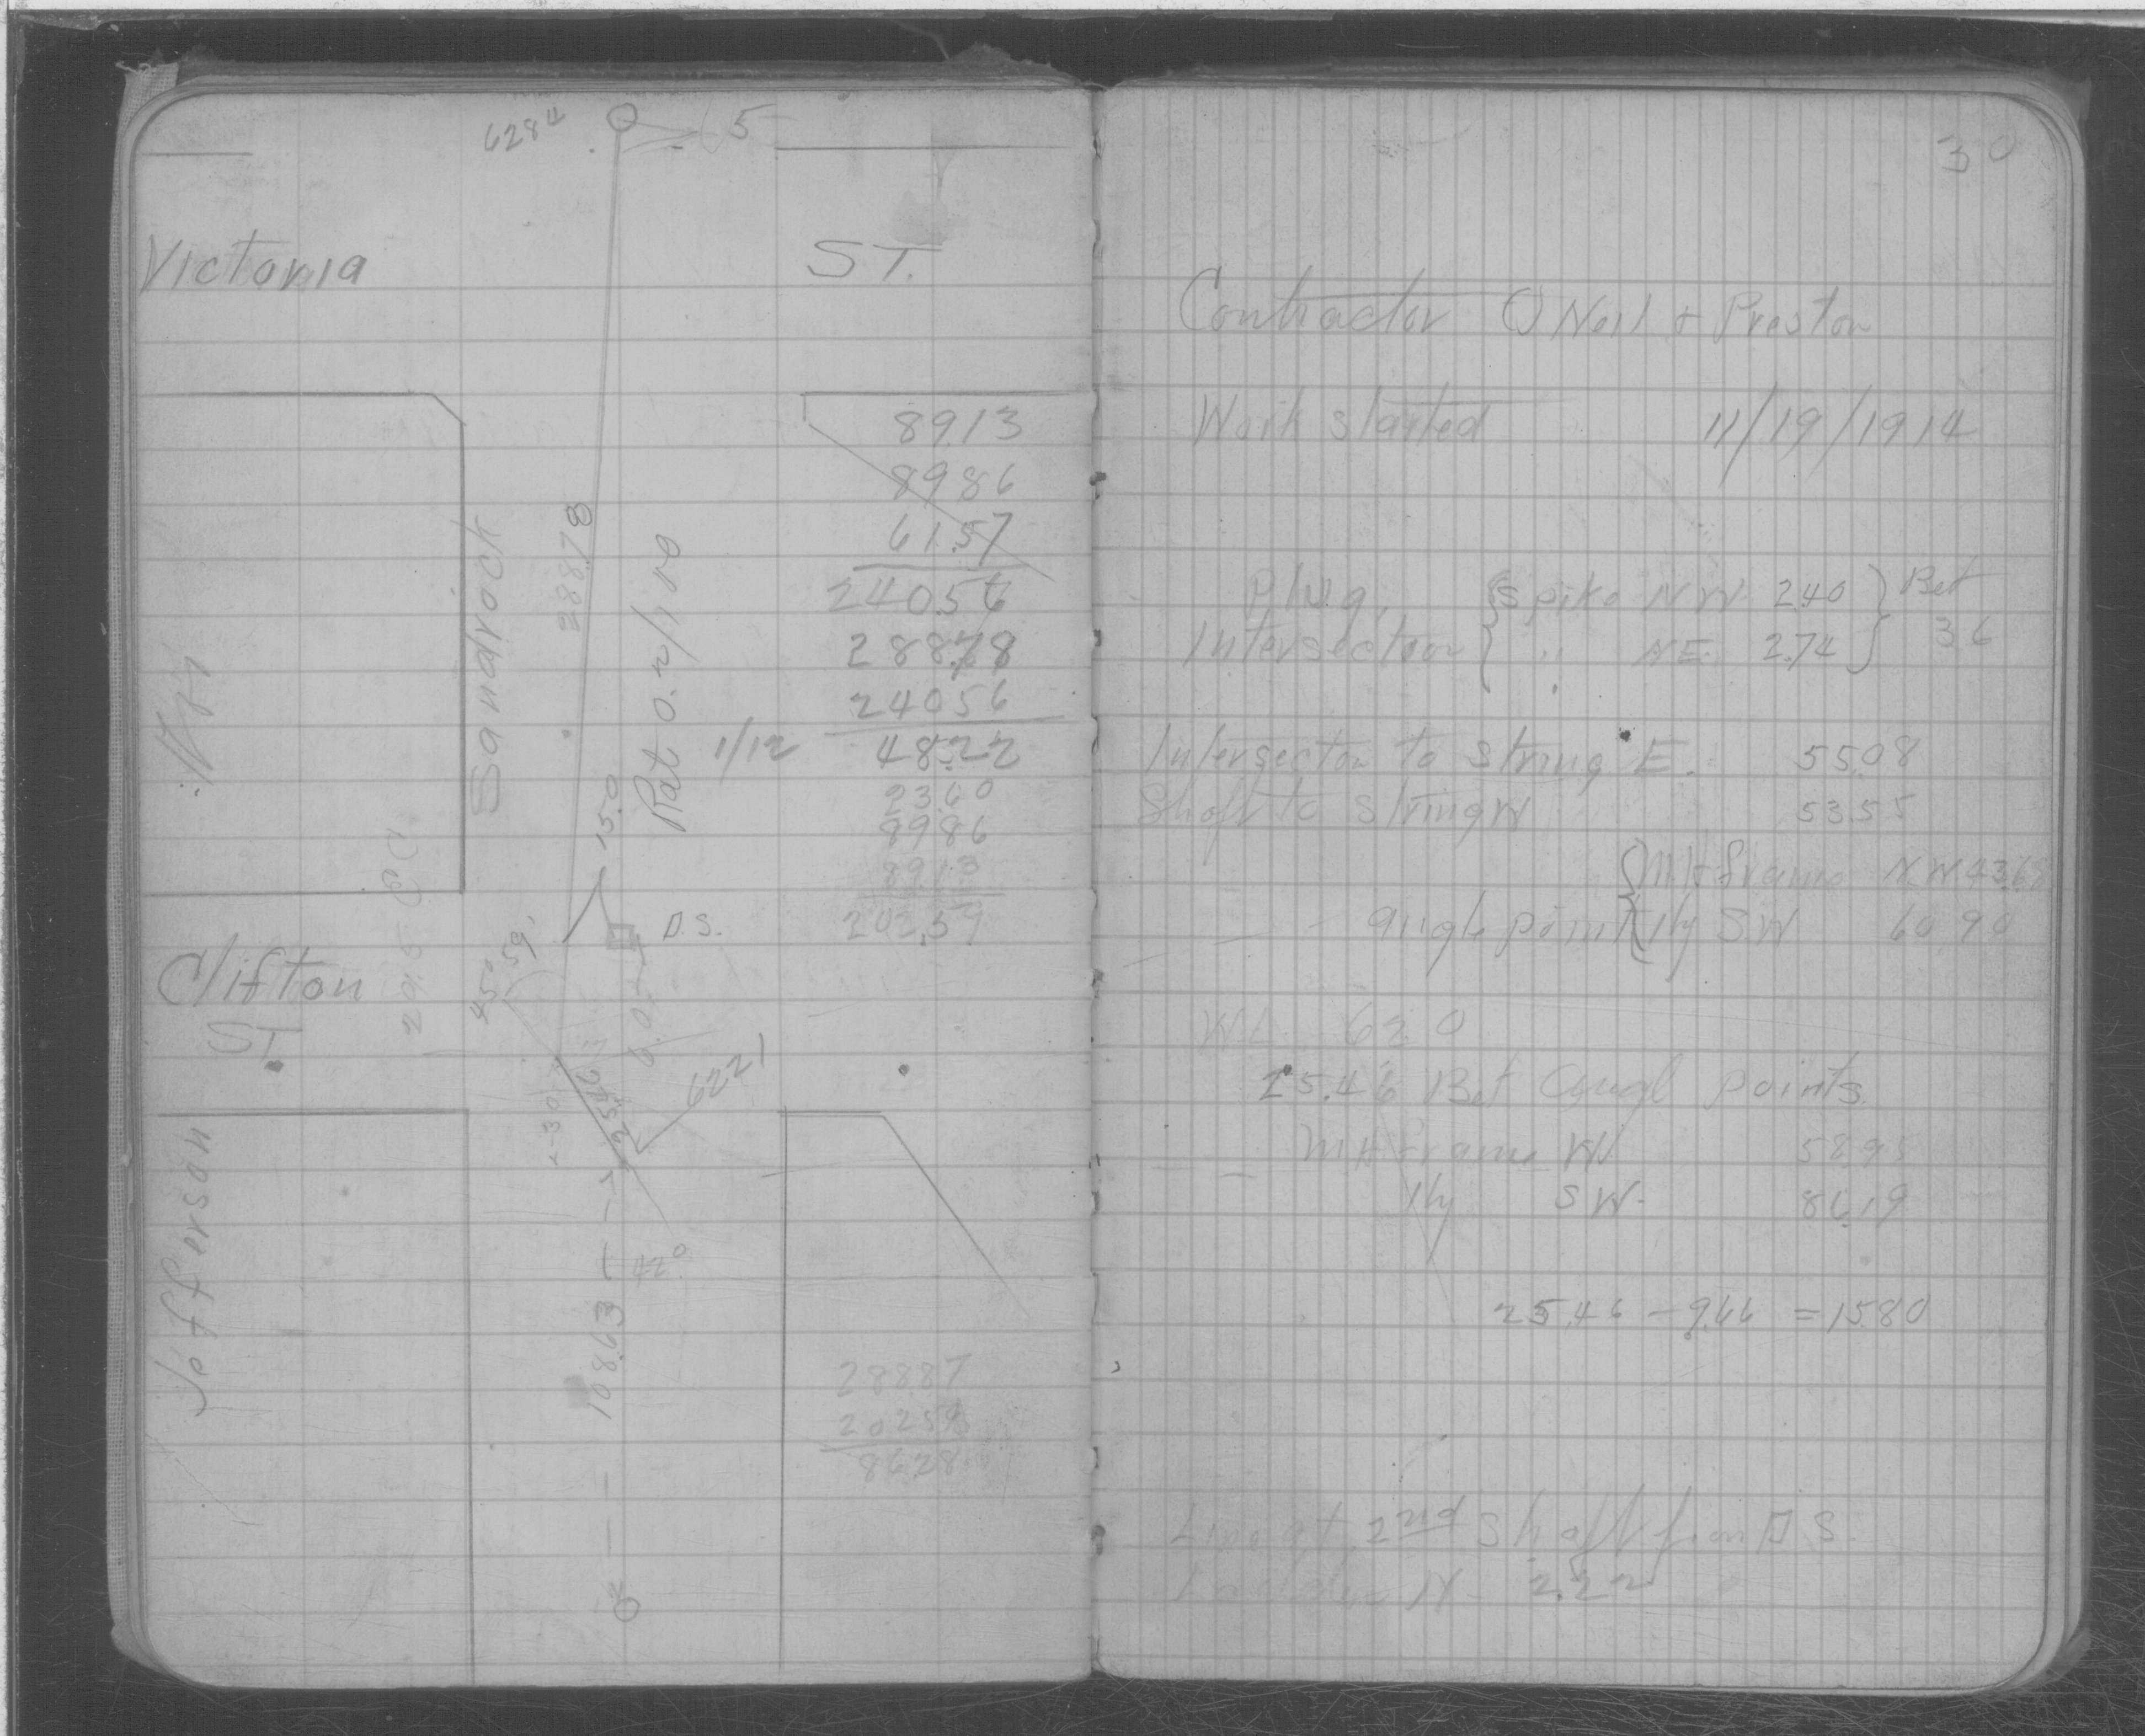 6284
5
Victoria ST.
89.13
89.86
61.57
240.56
288.78
240.56
1/12 48.22
23.60
89.86
89.13
202.59
Sandrock
288.78
Rat 0.2/100
15.0
D.S.
Clifton
ST
45° 59'
6.0
25.46
6221
30
Jefferson
42°
108.63
288.87
202.59
86.28
30
Contractor O Neil & Preston
Work started 11/19/1914
Plug, spike NW 2.40 Bet
Intersection " NE. 2.74 36
Intersecton to string E. 55.08
Shaft to string W 53.55
MH frame NW 43.68
angle point Hy SW 60.90
WL 62.0
25.46 Bet Angl points
MH frame W 58.95
Hy SW. 86.19
25.46 - 9.66 = 15.80
Line at 2nd shaft from D S.
N 2.22